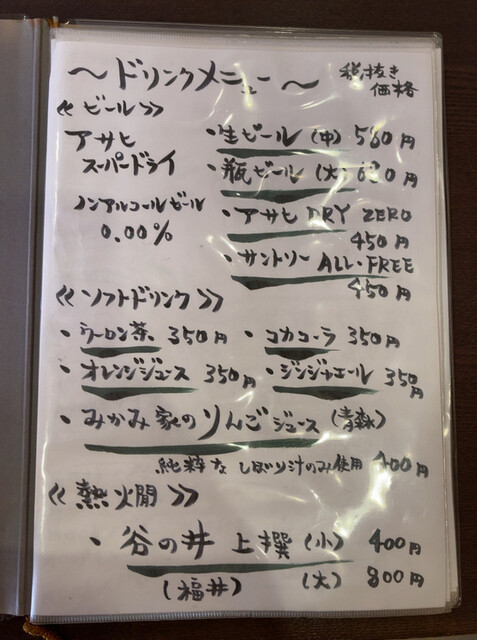 ～ドリンクメニュー～ 税抜き価格
≪ビール≫
アサヒ ・生ビール（中）580円
スーパードライ ・瓶ビール（大）680円
ノンアルコールビール ・アサヒ DRY ZERO
0.00% 450円
・サントリー ALL-FREE
450円
≪ソフトドリンク≫
・ウーロン茶 350円 ・コカコーラ 350円
・オレンジジュース 350円 ・ジンジャエール 350円
・みかみ家のりんごジュース（青森）
純粋なしぼり汁のみ使用 400円
≪熱燗≫
・谷の井 上撰（小）400円
（福井）（大）800円